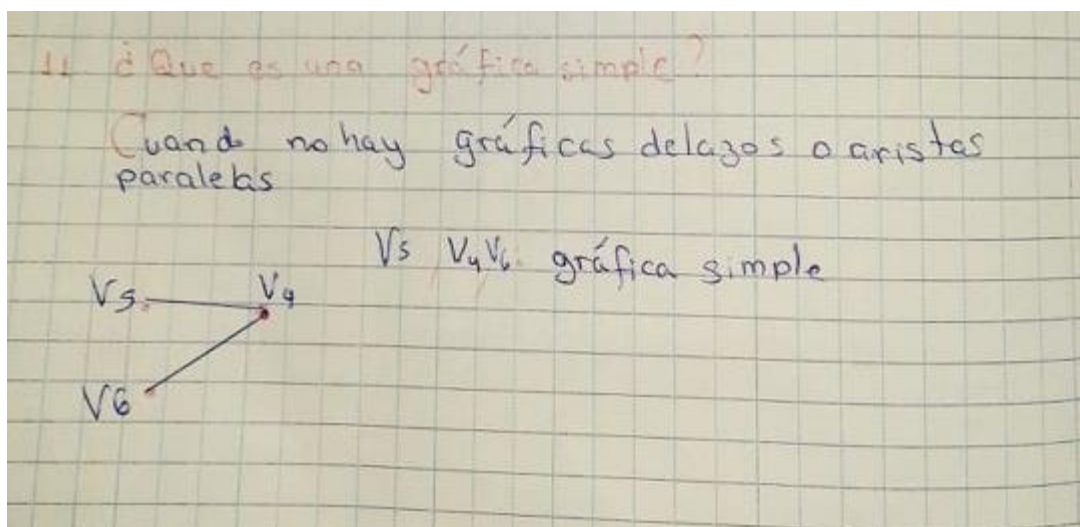 11. ¿Que es una gráfica simple?
Cuando no hay gráficas delazos o aristas
paralelas
V5 V4 V6 gráfica simple
V5 V4
V6